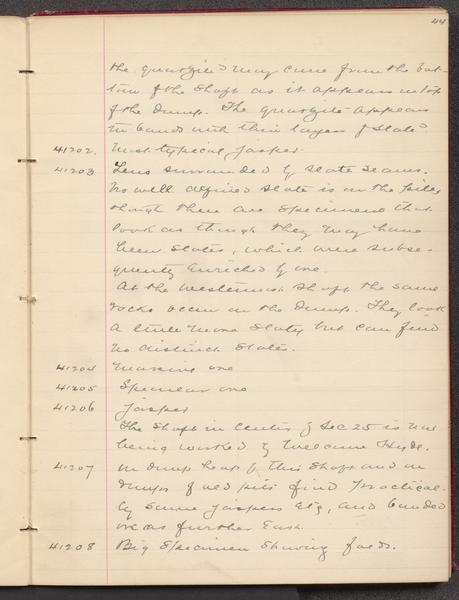 44
the quartzite may come from the bot-
tom of the shaft as it appears on top
of the dump. The quartzite appears
in bands with thin layers of slate
41202. Most typical jasper
41203 Lens surrounded by slate seams.
No well defined slate is in the piles
though there are specimens that
look as though they may have
been slates, which were subse-
quently enriched by ore.
At the westernmost shaft the same
rocks occur on the dump. They look
a little more slaty but can find
no distinct slates.
41204 Massive ore
41205 Specular ore
41206 Jasper
The shaft in center of Sec 25 is now
being worked by Hyde.
41207 In dump heap of this shaft and in
dumps of old pits find practical-
ly same jaspers etc, and banded
ore as further East.
41208 Big specimen showing folds.